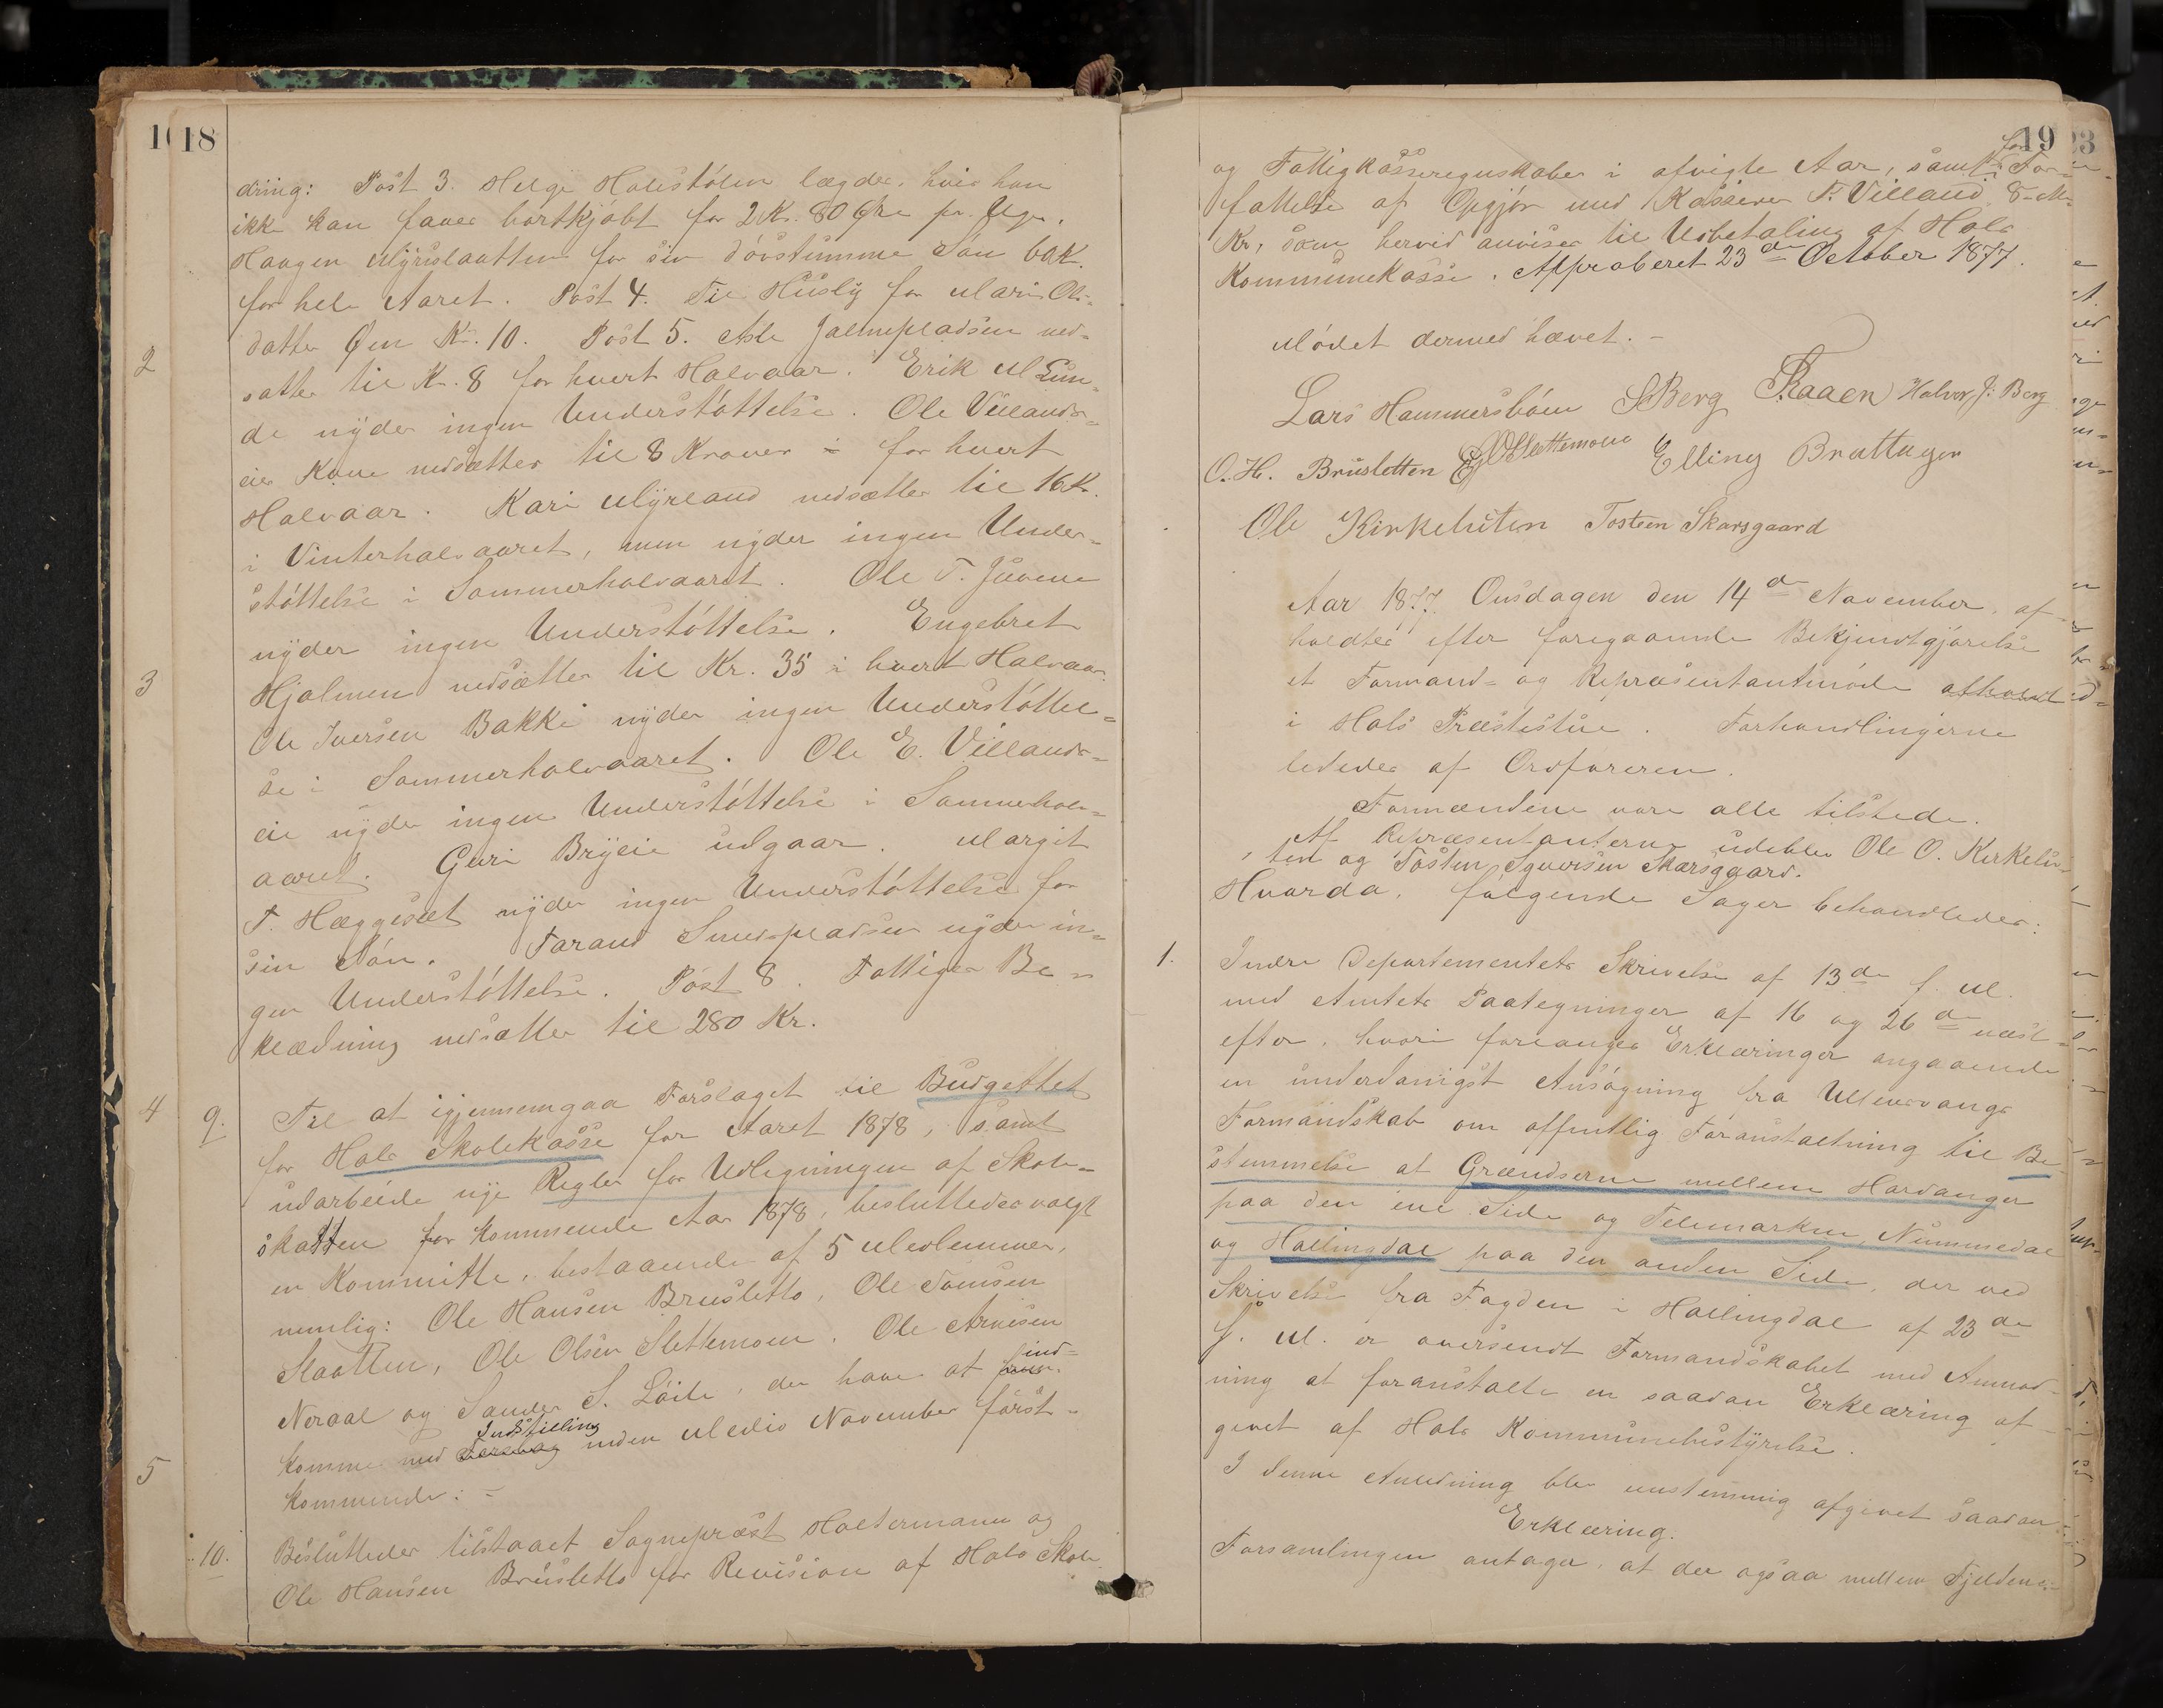 18
dring: Post 3. Helge Holestølen lægdes, hvis han
ikke kan faaes bortkjøbt for 2 Kr. 80 Øre pr. Uge.
Haagen Myrslaatten for sin døvstumme Søn 60 K.
for hele Aaret. Post 4. Til Husly for Mari Ols-
datter Øen Kr. 10. Post 5. Asle Jalmepladsen ned-
sattes til Kr. 8 for hvert Halvaar. Erik M Lun-
de nyder ingen Understøttelse. Ole Villands-
eies Kone nedsættes til 8 Kroner for hvert
Halvaar. Kari Myrland nedsættes til 16 K.
i Vinterhalvaaret, men nyder ingen Under-
støttelse i Sommerhalvaaret. Ole T. Juvene
nyder ingen Understøttelse. Engebret
Hjalmen nedsættes til Kr. 35 i hvert Halvaar.
Ole Iversen Bakke nyder ingen Understøttel-
se i Sommerhalvaaret. Ole E. Villands-
eie nyder ingen Understøttelse i Sommerhalv-
aaret. Guri Bryeie udgaar. Margit
T. Hæggeset nyder ingen Understøttelse for
sin Søn. Tarand pladsen nyder in-
gen Understøttelse. Post 8. Fattiges Be-
klædning nedsættes til 280 Kr.
9. Til at igjennemgaa Forslaget til Budgettet
for Hols Skolekasse for Aaret 1878, samt
udarbeide nye Regler for Udligningen af Skole-
skatten for kommende Aar 1878, besluttedes valgt
en Kommitte, bestaaende af 5 Medlemmer,
nemlig: Ole Hansen Brusletto, Ole Toinsen
Slaatten, Ole Olsen Slettemoen, Ole Arnesen
Noraal og Sander S. Løile, der have at ind-
komme med Indstilling inden Medio November først-
kommende: -
10. Besluttedes tilstaaet Sognepræst Holtermann og
Ole Hansen Brusletto for Revision af Hols Skole
2
3
4
5
19
og Fattigkasseregnskaber i afvigte Aar, samt for For-
fattelse af Opgjør med Kasserer T. Villand, 8
Kr, som herved anvises til Udbetaling af Hols
Kommunekasse. Approberet 23de October 1877.
Mødet dermed hævet. -
Lars Hammersbøen S Berg T Raaen Halvor J. Berg
O. H. Brusletten Slettemoen Elling Brattegar
Ole Kirkeluten Tosten Skarsgaard
Aar 1877 Onsdagen den 14de November, af-
holdtes efter foregaaende Bekjendtgjørelse
et Formand- og Repræsentantmøde afholdt
i Hols Præstestue. Forhandlingerne
lededes af Ordføreren.
Formændene vare alle tilstede.
Af Repræsentanterne udeblev Ole O. Kirkelu-
ten og Tosten Sjversen Skarsgaard.
Hvorda, følgende Sager behandledes:
1. Indre Departementets Skrivelse af 13de f. M.
med Amtets Paategninger af 16 og 26de næst-
efter, hvori forlanges Erklæringer angaaende
en underdanigst Ansøgning fra Ullensvangs
Formandskab om offentlig Foranstaltning til Be-
stemmelse af Grændserne mellem Hardanger
paa den ene Side og Telemarken, Nummedal
og Hallingdal paa den anden Side, der ved
Skrivelse fra Fogden i Hallingdal af 23de
f. M. er oversendt Formandskabet med Anmod-
ning at foranstalte en saadan Erklæring af-
givet af Hols Kommunebestyrelse.
I denne Anledning blev enstemmig afgivet saadan
Erklæring.
Forsamlingen antager, at der ogsaa mellem Fjeldene